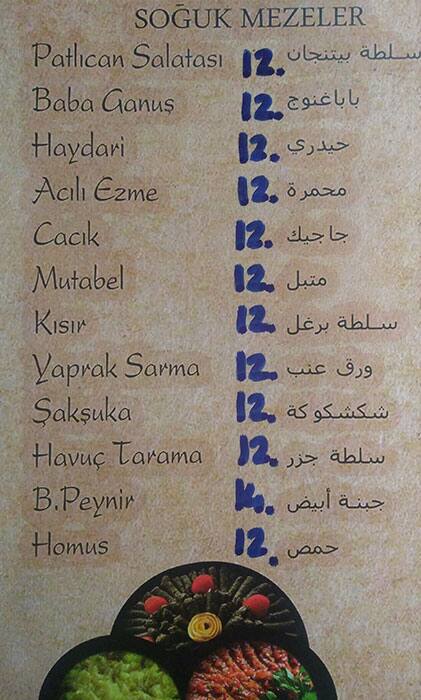 SOĞUK MEZELER
Patlıcan Salatası 12. سلطة بيتنجان
Baba Ganuş 12. باباغنوج
Haydari 12. حيدري
Acılı Ezme 12. محمرة
Cacık 12. جاجيك
Mutabel 12. متبل
Kısır 12. سلطة برغل
Yaprak Sarma 12. ورق عنب
Şakşuka 12. شكشكوكة
Havuç Tarama 12. سلطة جزر
B.Peynir 14. جبنة أبيض
Homus 12. حمص